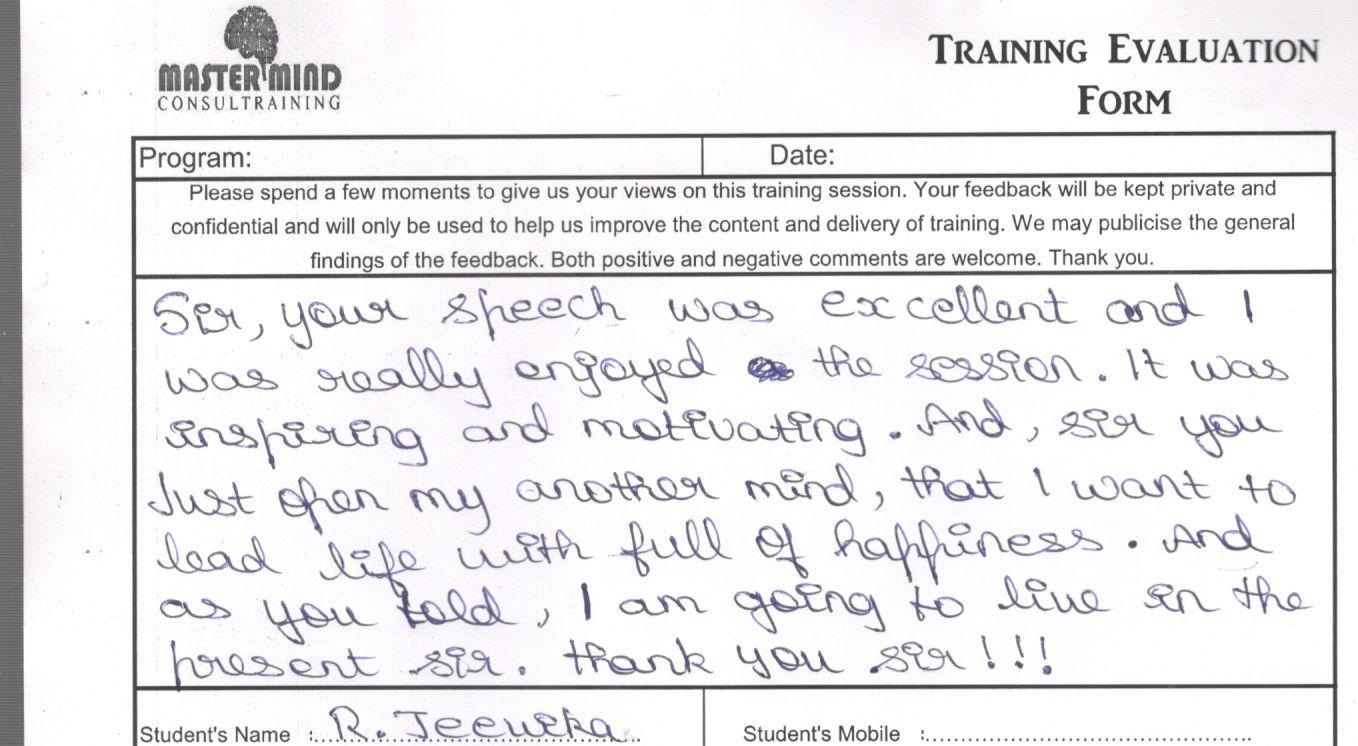 MASTER MIND
CONSULTRAINING
TRAINING EVALUATION
FORM
Program:
Date:
Please spend a few moments to give us your views on this training session. Your feedback will be kept private and
confidential and will only be used to help us improve the content and delivery of training. We may publicise the general
findings of the feedback. Both positive and negative comments are welcome. Thank you.
Sir, your speech was excellent and I
was really enjoyed the session. It was
inspiring and motivating. And, sir you
Just open my another mind, that I want to
lead life with full of happiness. And
as you told, I am going to live in the
present sir. thank you sir!!!
Student's Name : R.
Student's Mobile :